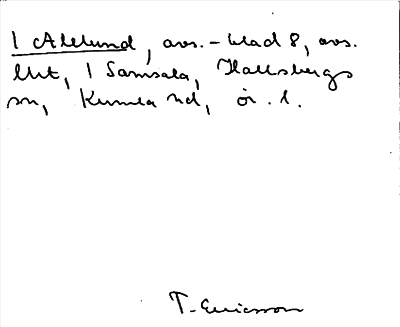 1 Alelund, avs. - blad 8, avs.
litt, 1 Samsala, Hallsbergs
sn, Kumla hd, ör. l.
T. Ericsson